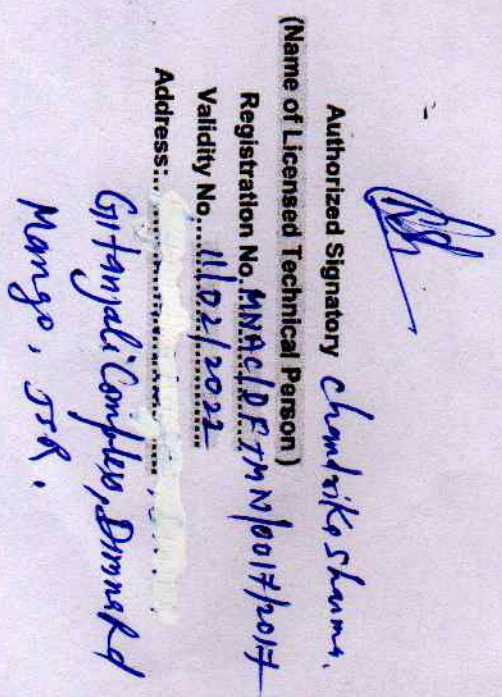 Authorized Signatory Chandrika Sharma.
(Name of Licensed Technical Person)
Registration No. MNAC/DFTMN/0017/2017
Validity No......11/02/2022........
Address:..............................
Gitanjali Complex, Dimna Rd
Mango, JSR.